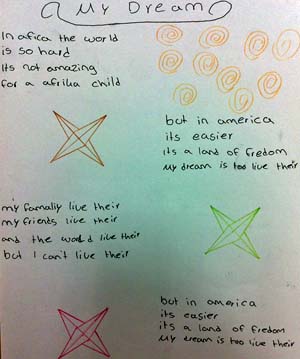 My Dream
In afica the world
is so hard
Its not amazing
for a afrika child
but in america
its easier
its a land of fredom
My dream is too live their
my famally live their
my friends live their
and the world live their
but I can't live their
but in america
its easier
its a land of fredom
My dream is too live their